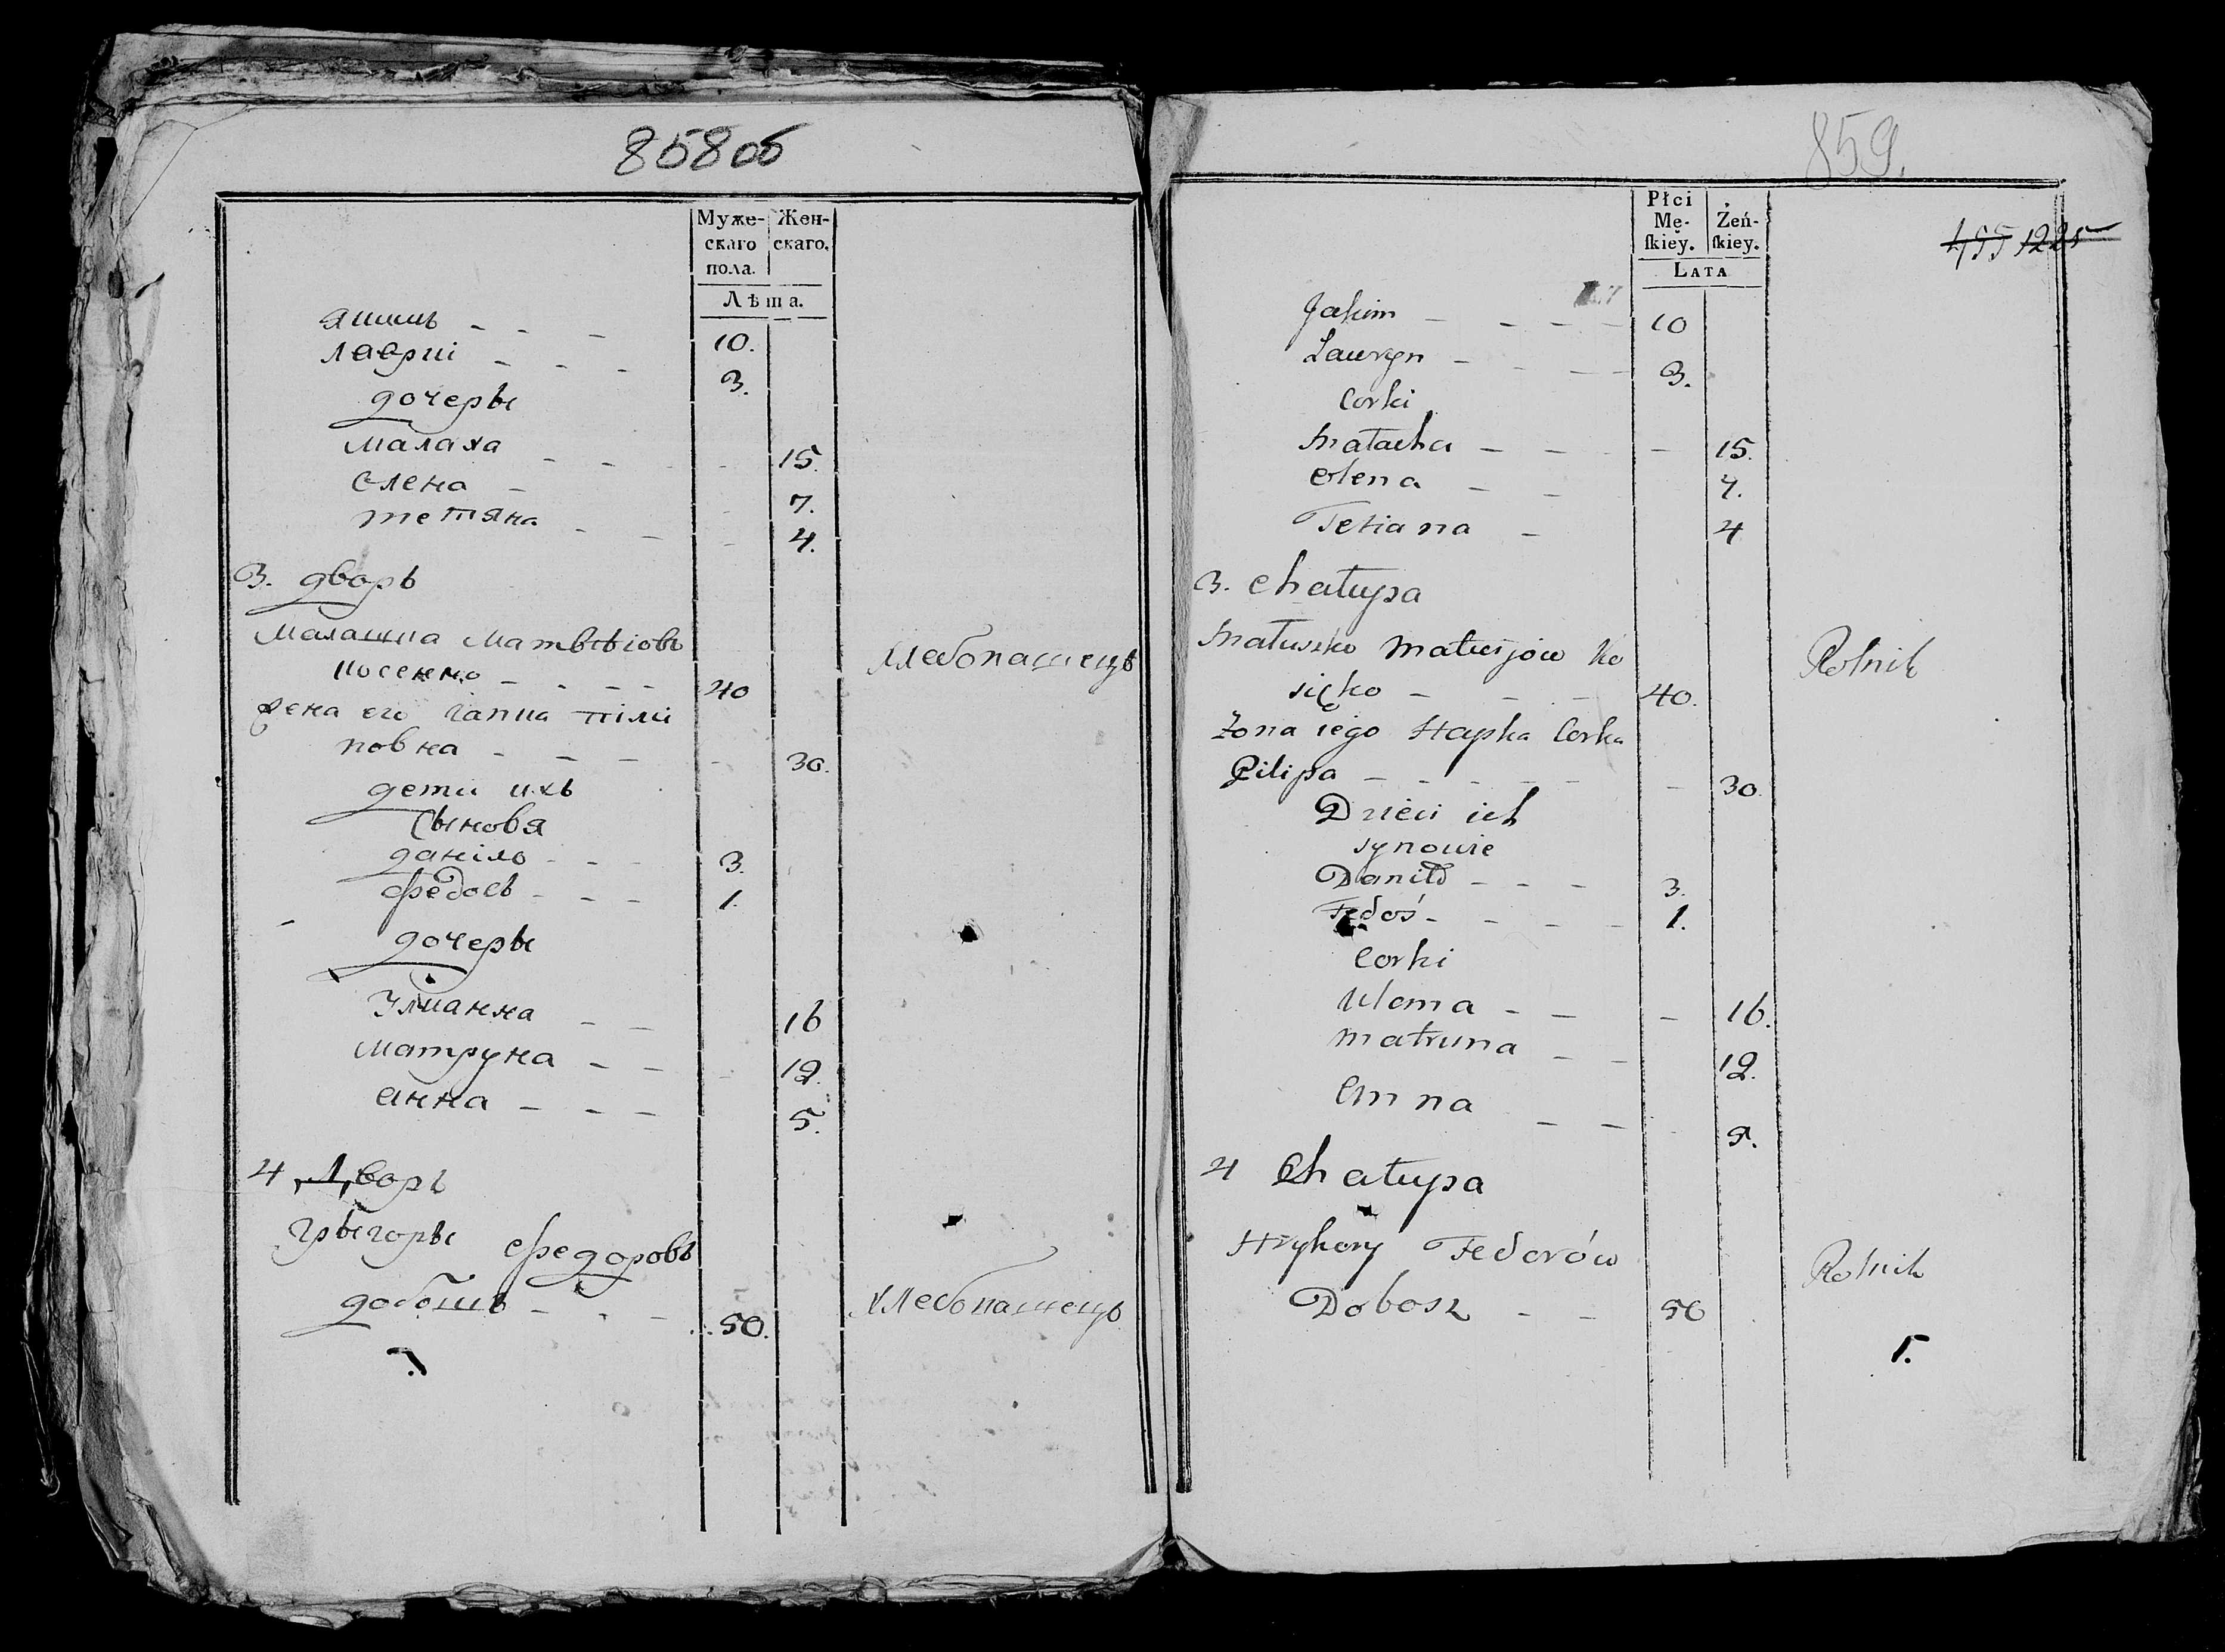 858об
Муже-
скаго
пола.
Жен-
скаго.
Лѣта.
якимъ 10.
лаврiнъ 3.
дочеры
малаха 15.
елена 7.
тетяна 4.
3. дворъ
матвѣiовъ
хлебопашецъ
40
жена его гапка пили
повна 30.
дети ихъ
сыновя
данiло 3.
федось 1.
дочеры
улианна 16
матруна 12.
анна 5.
4 Дворъ
грыгоры федоровъ
добошъ 50. хлебопашецъ
859.
Płci
Mę-
ſkiey.
Żeń-
ſkiey.
Lata
455 1225
Jakim 10
Lauryn 3.
Corki
Małacha 15.
Olena 7.
Tetiana 4
3. Chałupa
Matwijow Ko Rolnik
40.
Żona iego Hapka Corka
Pilipa 30.
Dzieci ich
synowie
Daniło 3.
Fedoś 1.
Corki
16.
Matruna 12.
Anna 5.
4 Chałupa
Hryhory Fedorów Rolnik
Dobosz 50